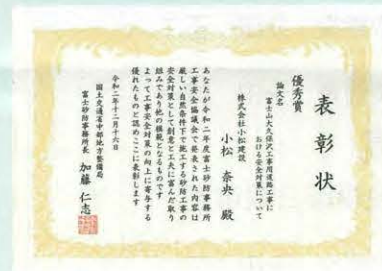 表彰状
優秀賞
論文名
富士山大久保沢工事用道路工事に
おける安全対策について
株式会社小松建設
小松 奈央 殿
あなたが令和二年度富士砂防事務所
工事安全協議会で発表された内容は
厳しい自然条件下で施工する砂防工事の
安全対策として創意と工夫に富んだ取り
組みであり他の模範となるものです
よって工事安全対策の向上に寄与する
優れたものと認めここに表彰します
令和二年十二月十六日
国土交通省中部地方整備局
富士砂防事務所長 加藤 仁志